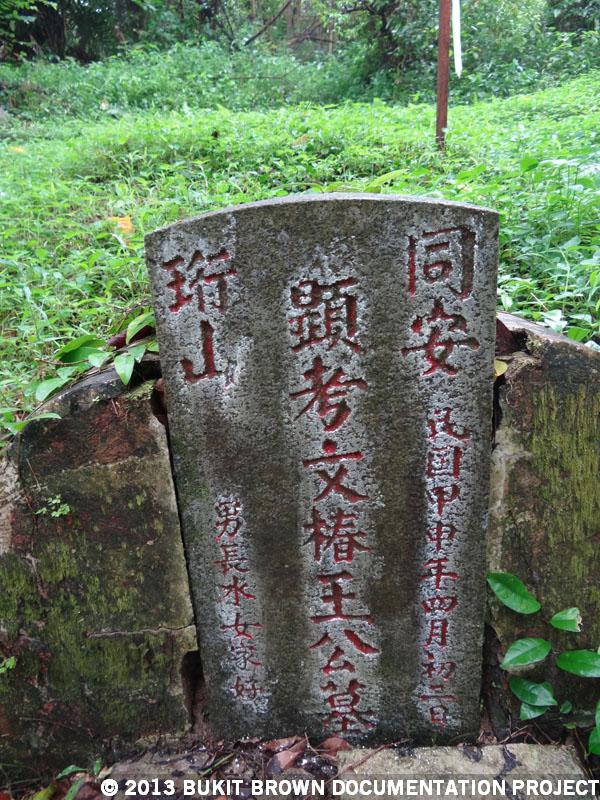 同安
民国甲申年四月初二日
顯考文椿王公墓
珩山
男長水女泳好
© 2013 BUKIT BROWN DOCUMENTATION PROJECT